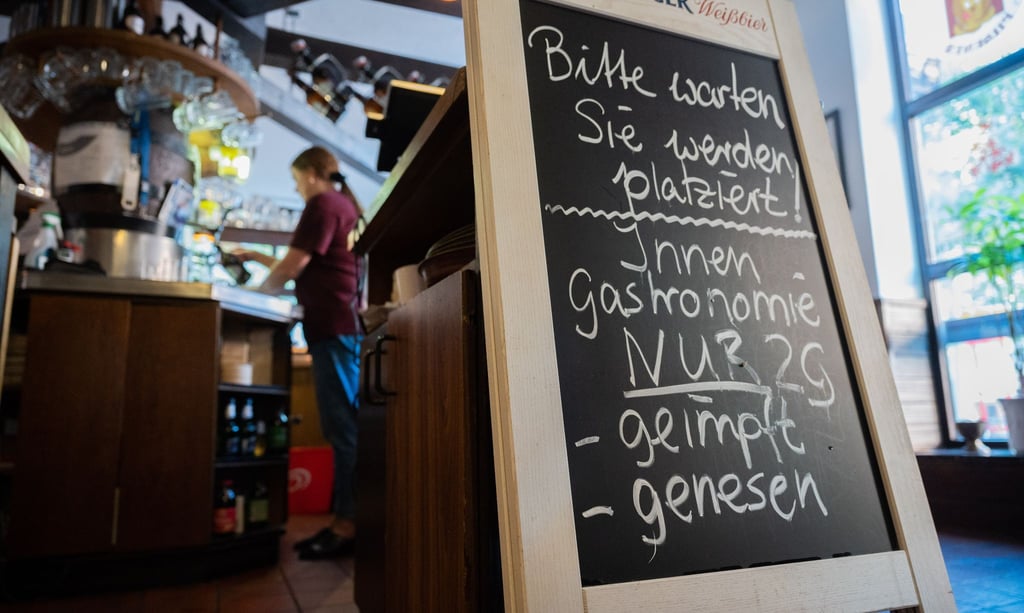 Weißbier
Bitte warten
Sie werden
platziert!
Innen
Gastronomie
NUR 2G
- geimpft
- genesen